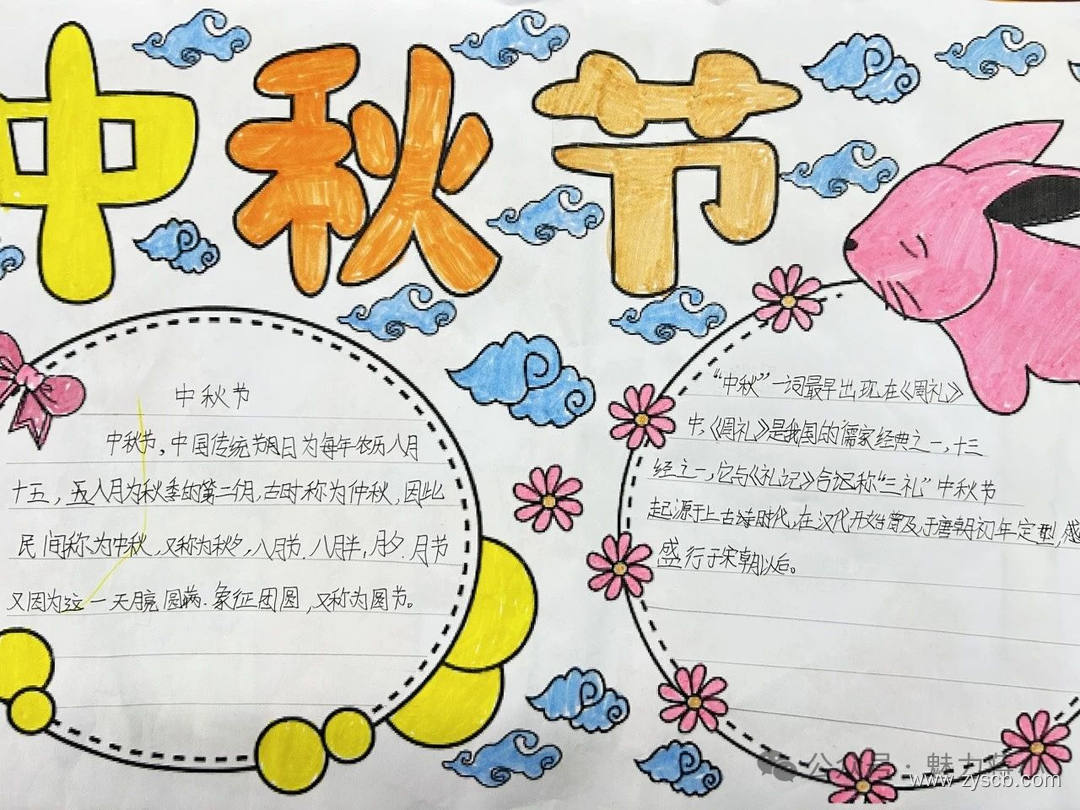 中秋节
中秋节
中秋节，中国传统节日日为每年农历八月
十五，八月为秋季的第二个月，古时称为仲秋，因此
民间称为中秋，又称为秋夕，八月节．八月半，月夕．月节
又因为这一天月亮圆满．象征团圆，又称为团圆节。
“中秋”一词最早出现在《周礼》
中《周礼》是我国的儒家经典之一，十三
经之一，它与《礼记》合记称“三礼”中秋节
起源于上古时代，在汉代开始普及，于唐朝初年定型，盛
盛行于宋朝以后。
公众号·魅力
www.zyscb.com